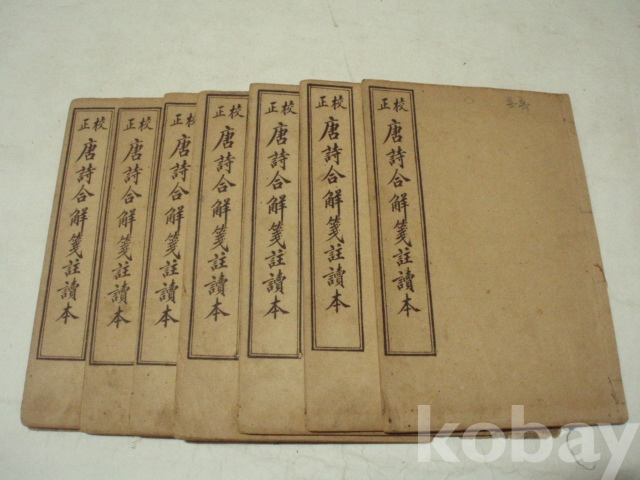 校正
唐詩合解箋註讀本
校正
唐詩合解箋註讀本
校正
唐詩合解箋註讀本
校正
唐詩合解箋註讀本
校正
唐詩合解箋註讀本
校正
唐詩合解箋註讀本
校正
唐詩合解箋註讀本
kobay